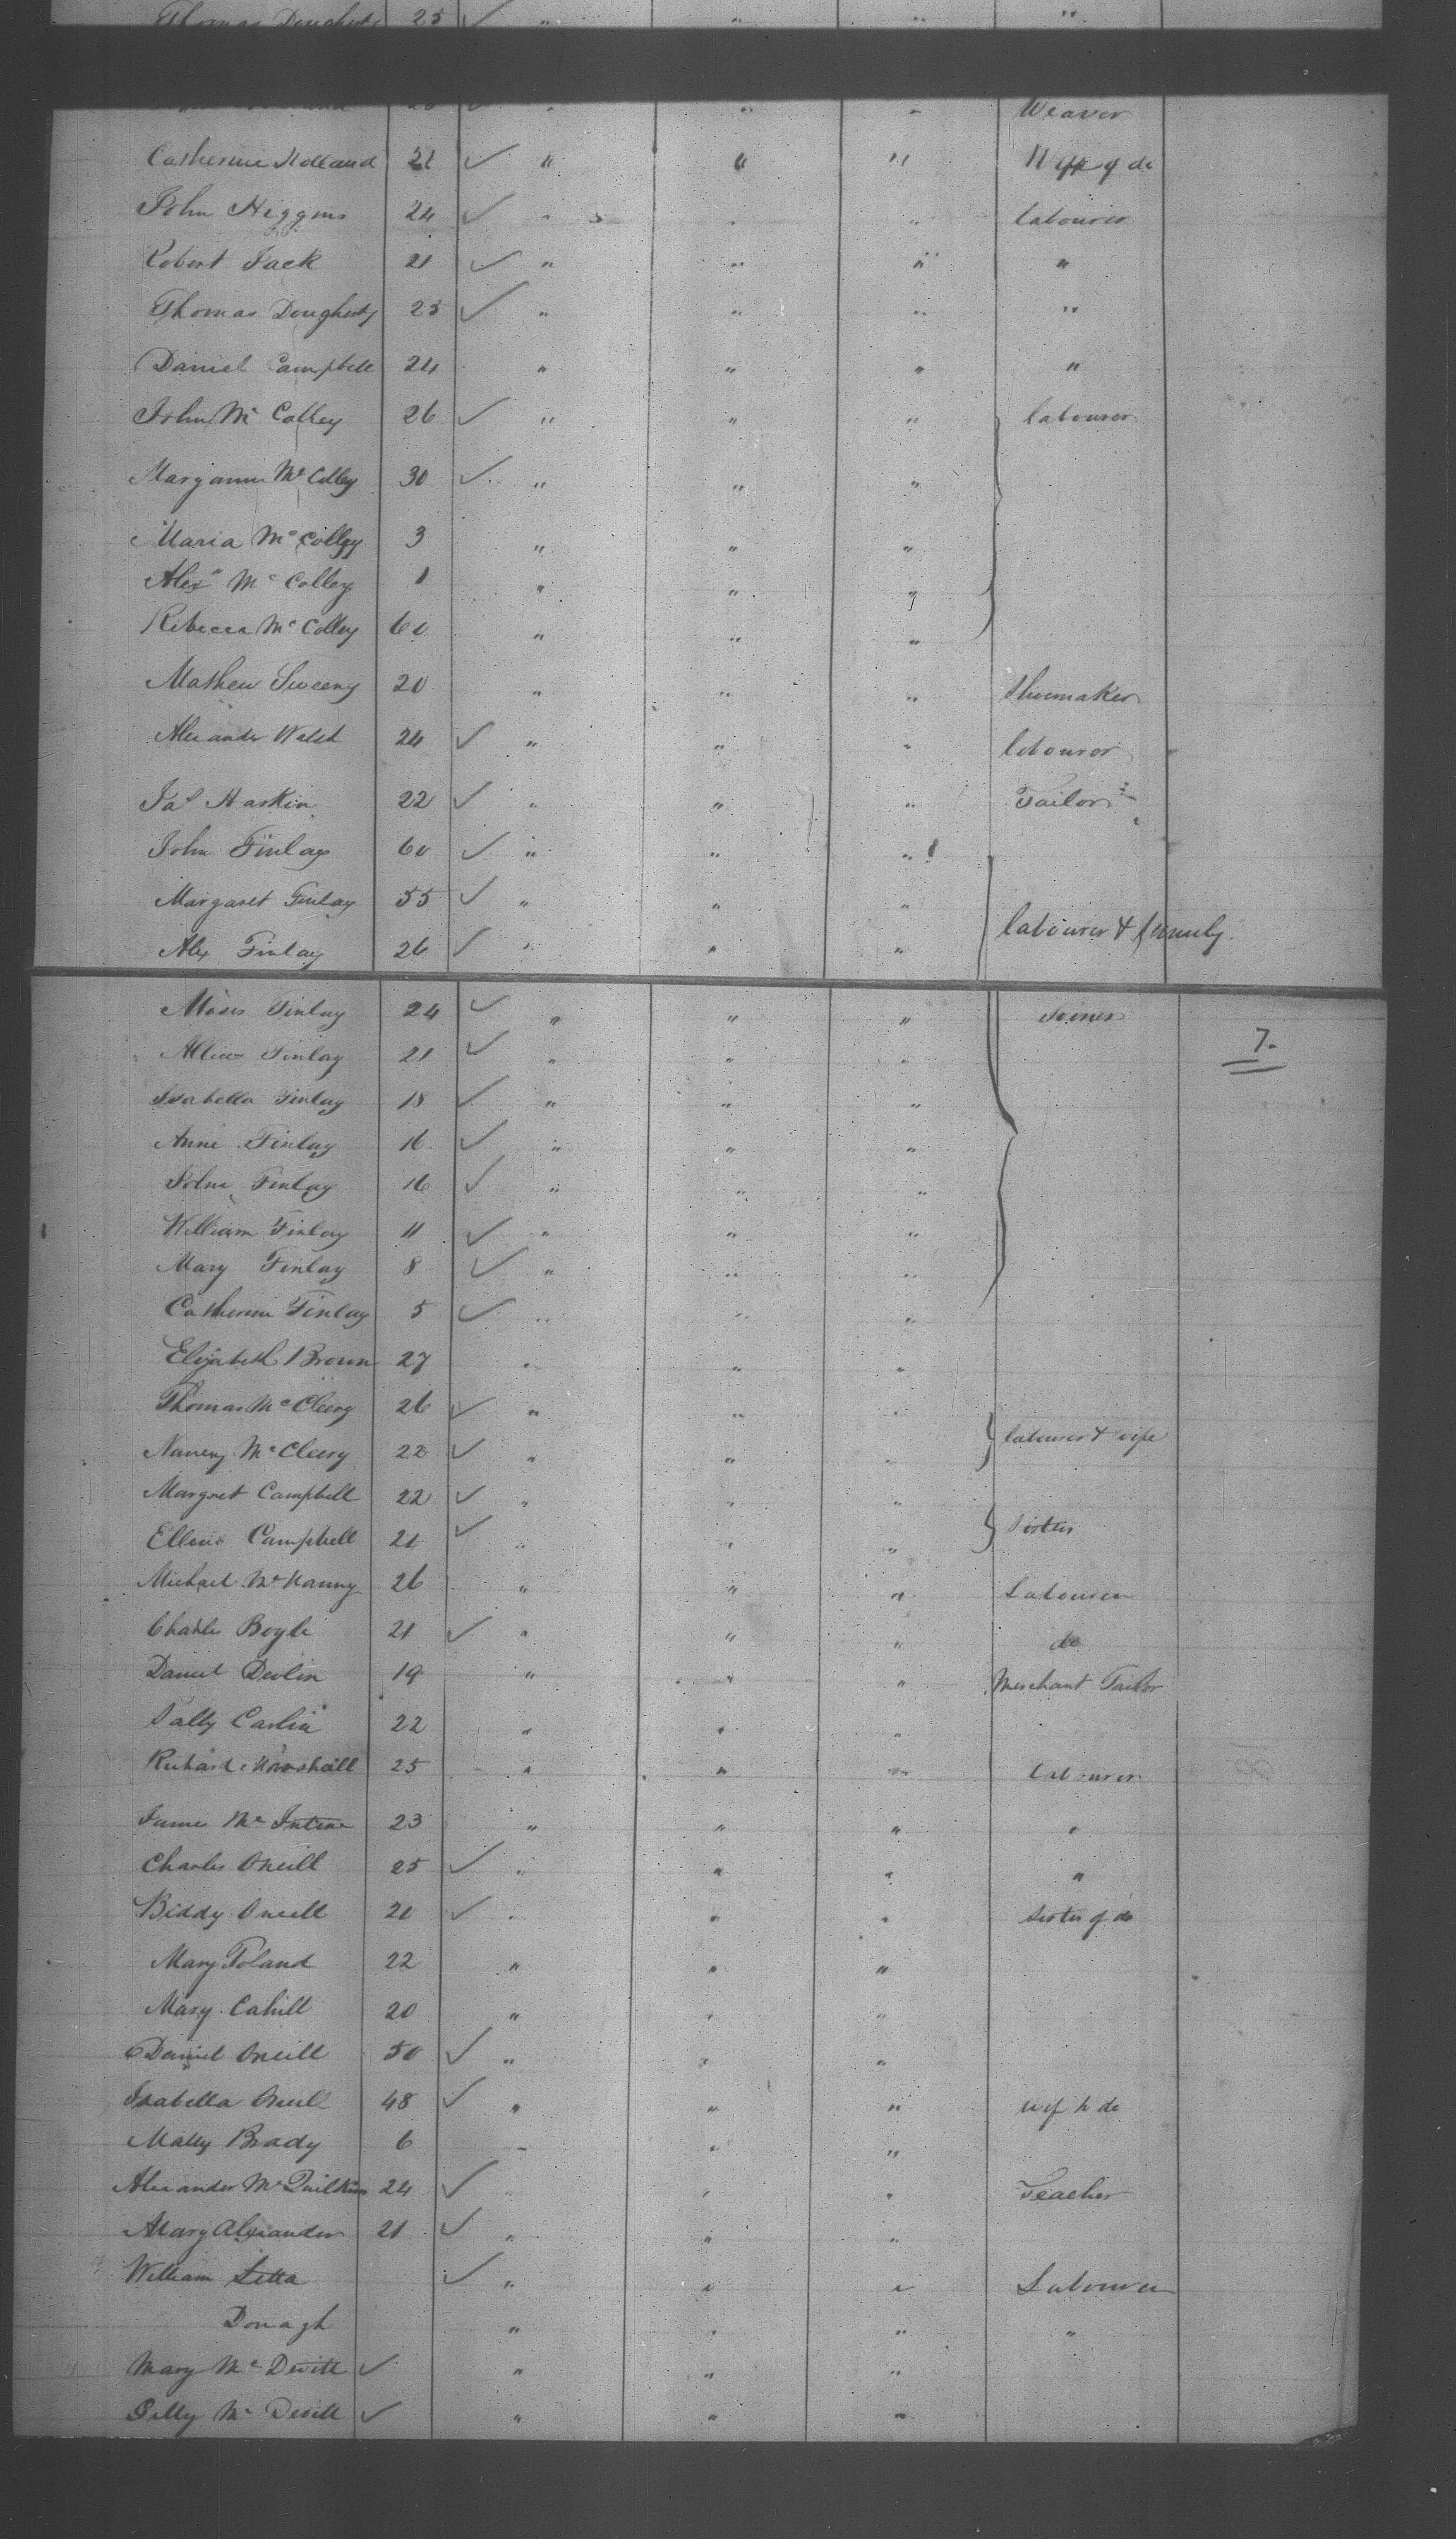 Thomas Dougherty 25 ✓ " " " "
✓ " " " Weaver
Catherine Holland 21 ✓ " " " Wife of do
John Higgins 24 ✓ " " " labourer
Robert Jack 21 ✓ " " " "
Thomas Dougherty 25 ✓ " " " "
Daniel Campbell 24 " " " "
John Mc Colley 26 ✓ " " " labourer
Maryann Mc Colley 30 ✓ " " "
Maria Mc Colley 3 " " "
Alexr Mc Colley 1 " " "
Rebecca Mc Colley 60 " " "
Mathew Sweeny 20 " " " Shoemaker
Alexander Walsh 24 ✓ " " " labourer
Jas Harkin 22 ✓ " " " Tailor
John Finlay 60 ✓ " " "
Margaret Finlay 55 ✓ " " "
labourer & family
Alex Finlay 26 ✓ " " "
Moses Finlay 24 ✓ " " " Joiner
7.
Finlay 21 ✓ " " "
Isabella Finlay 18 ✓ " " "
Anne Finlay 16 ✓ " " "
John Finlay 16 ✓ " " "
William Finlay 11 ✓ " " "
Mary Finlay 8 ✓ " " "
Catherine Finlay 5 ✓ " " "
Elizabeth Brown 27 " " "
Thomas Mc Cleery 26 ✓ " " "
labourer & wife
Nancy Mc Cleery 22 ✓ " " "
Margret Campbell 22 ✓ " " "
Sisters
Ellen Campbell 21 ✓ " " "
Michael Mc 26 " " " Labourer
Charles Boyle 21 ✓ " " " do
Daniel Devlin 19 " " " Merchant Tailor
Sally Carlin 22 " " "
Richard Marshall 25 " " " labourer
Mc Intire 23 " " " "
Charles Oneill 25 ✓ " " " "
Biddy Oneill 21 ✓ " " " Sister of do
Mary Toland 22 " " "
Mary Cahill 20 " " "
Daniel Oneill 50 ✓ " " "
Isabella Oneill 48 ✓ " " " wife to do
Mally Brady 6 " " "
Alexander Mc Quilkin 24 ✓ " " " Teacher
Mary Alexander 21 ✓ " " "
William ✓ " " " Labourer
Donagh " " " "
Mary Mc Devitt ✓ " " "
Mc Devitt ✓ " " "